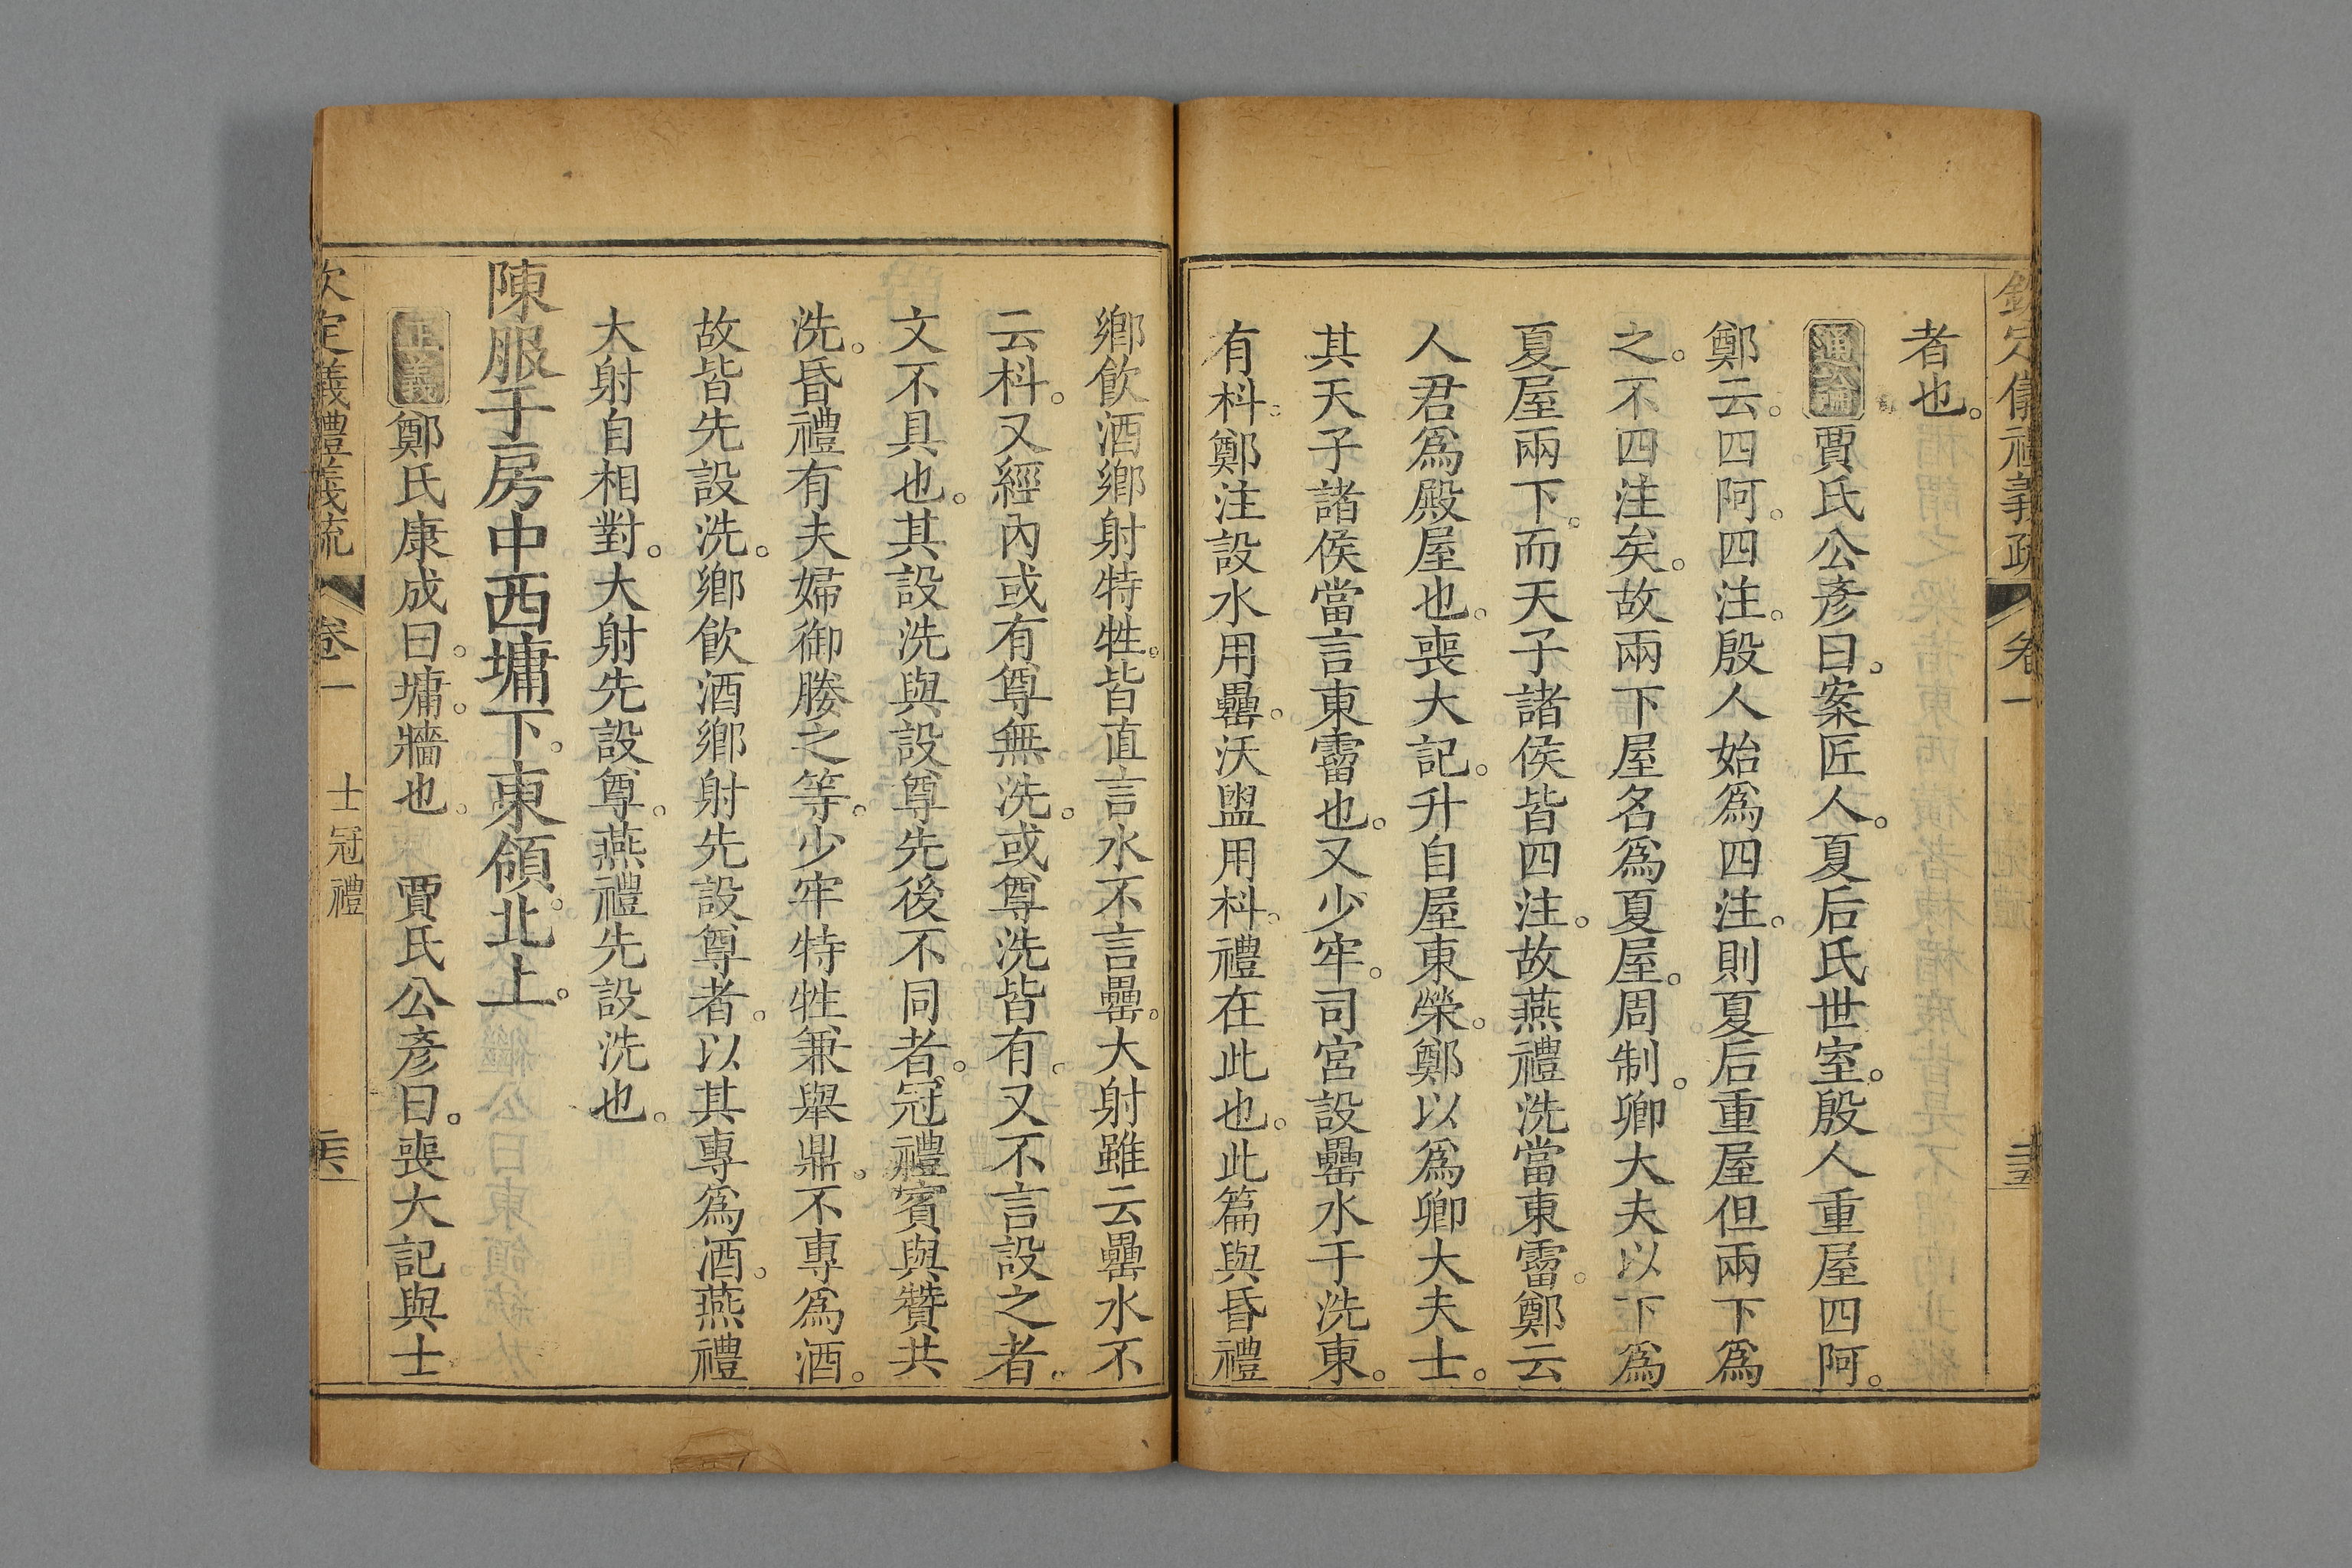 欽定儀禮義疏 卷一
者也。
通論賈氏公彥曰。案匠人。夏后氏世室。殷人重屋四阿。
鄭云。四阿。四注。殷人始爲四注。則夏后重屋但兩下爲
之。不四注矣。故兩下屋名爲夏屋。周制。卿大夫以下爲
夏屋兩下。而天子諸侯皆四注。故燕禮洗當東霤。鄭云
人君爲殿屋也。喪大記。升自屋東榮。鄭以爲卿大夫士。
其天子諸侯當言東霤也。又少牢。司宮設罍水于洗東。
有枓。鄭注設水用罍。沃盥用枓。禮在此也。此篇與昏禮
鄉飲酒鄉射特牲。皆直言水不言罍。大射雖云罍水不
云枓。又經內或有尊無洗。或尊洗皆有。又不言設之者。
文不具也。其設洗與設尊先後不同者。冠禮賓與贊共
洗。昏禮有夫婦御媵之等。少牢特牲兼舉鼎。不專爲酒。
故皆先設洗。鄉飲酒鄉射先設尊者。以其專爲酒。燕禮
大射自相對。大射先設尊。燕禮先設洗也。
陳服于房中西墉下。東領。北上。
正義鄭氏康成曰。墉。牆也。 賈氏公彥曰。喪大記與士
欽定儀禮義疏 卷一 士冠禮